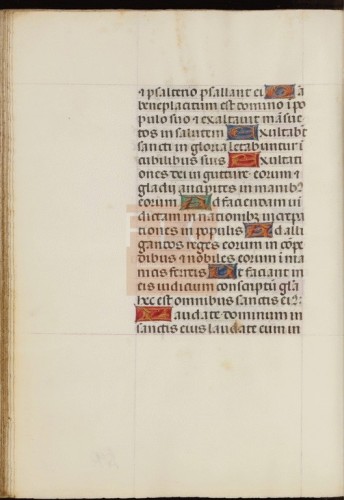 ⁊ psalterio psallant ei Q̃a
beneplacitum est domino ĩ po
pulo suo ⁊ exaltauit mãsue
tos in salutem Exultabt̃
sancti in gloria letabuntur ĩ
cubilibus suis Exultati
ones dei in gutture eorum ⁊
gladij ancipites in manibꝫ
eorum Ad faciendam ui
dictam in nationibꝫ increpa
tiones in populis Ad alli
gandos reges eorum in cõpe
dibus ⁊ nobiles eorum ĩ ma
nicis ferreis Ut faciant in
eis iudicium conscriptũ glã
hec est omnibus sanctis ei⁹:
Laudate dominum in
sanctis eius laudate eum in